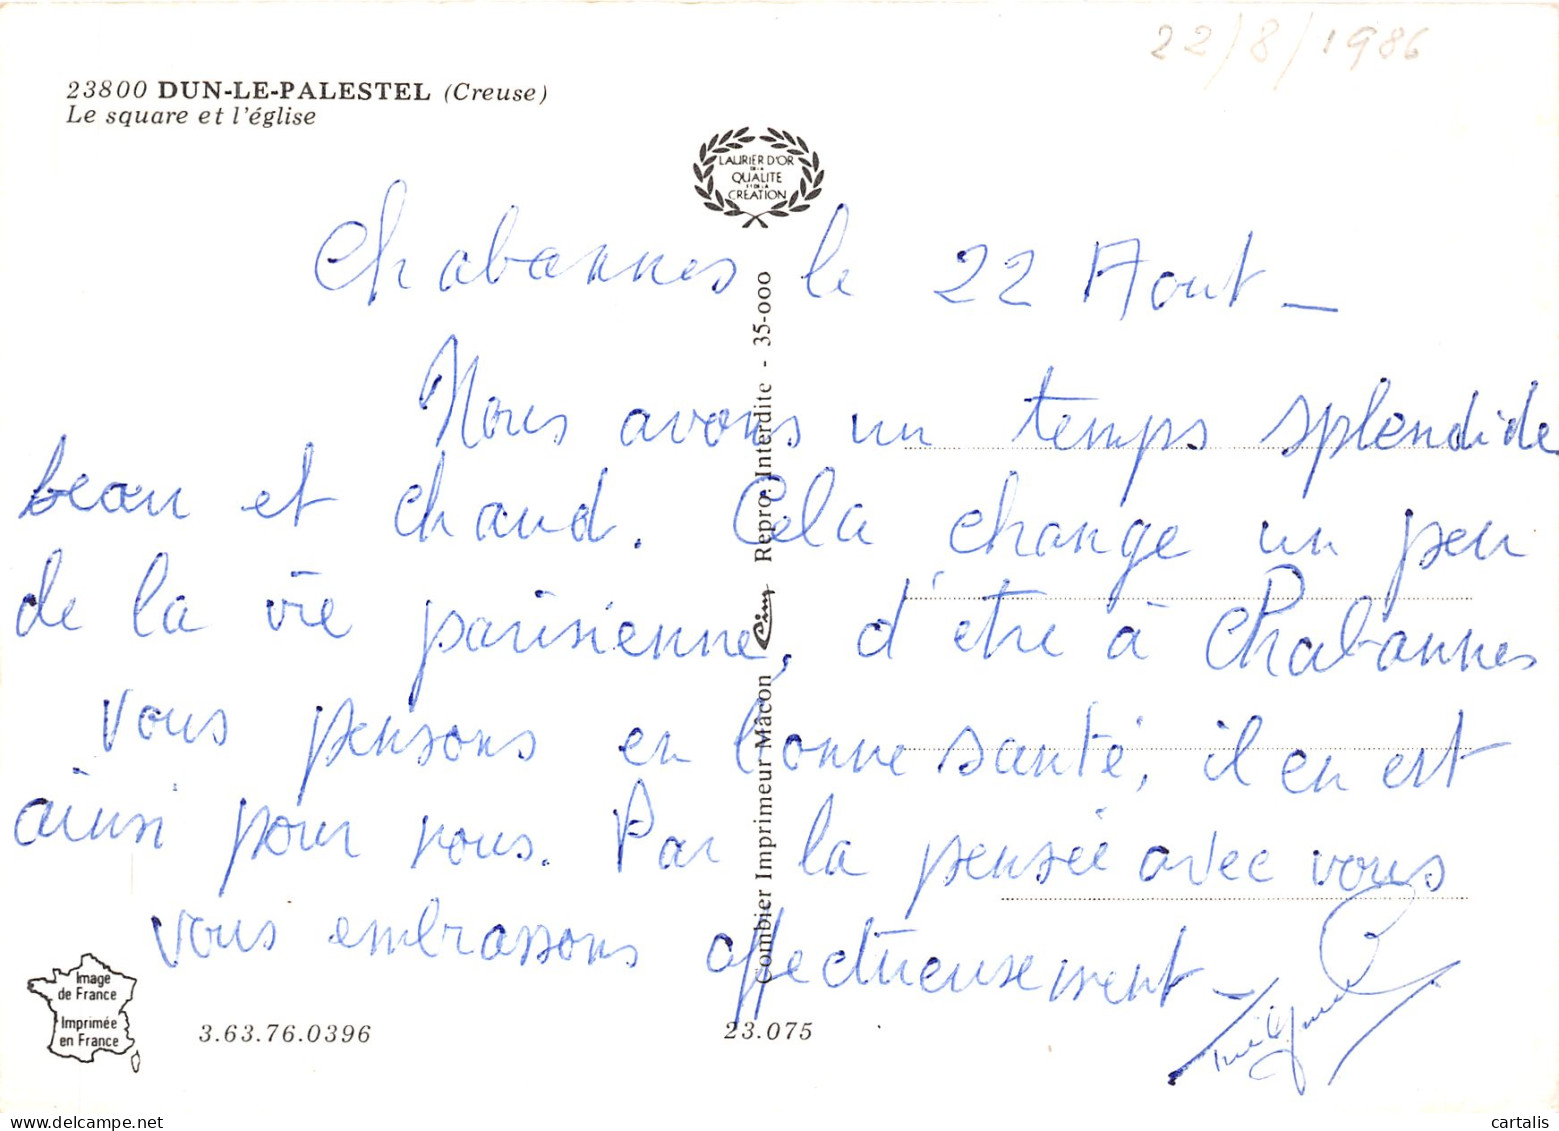 22/8/1986
23800 DUN-LE-PALESTEL (Creuse)
Le square et l'église
LAURIER D'OR
DE LA
QUALITE
ET DE LA
CREATION
Chabannes le 22 Aout _
Nous avons un temps splendide
beau et chaud. Cela change un peu
de la vie parisienne, d'être à Chabannes
vous pensons en bonne santé, il en est
ainsi pour nous. Par la pensée avec vous
vous embrassons affectueusement _
Combier Imprimeur Mâcon Cim Repro. Interdite - 35-000
Image
de France
Imprimée
en France
3.63.76.0396
23.075
cartalis